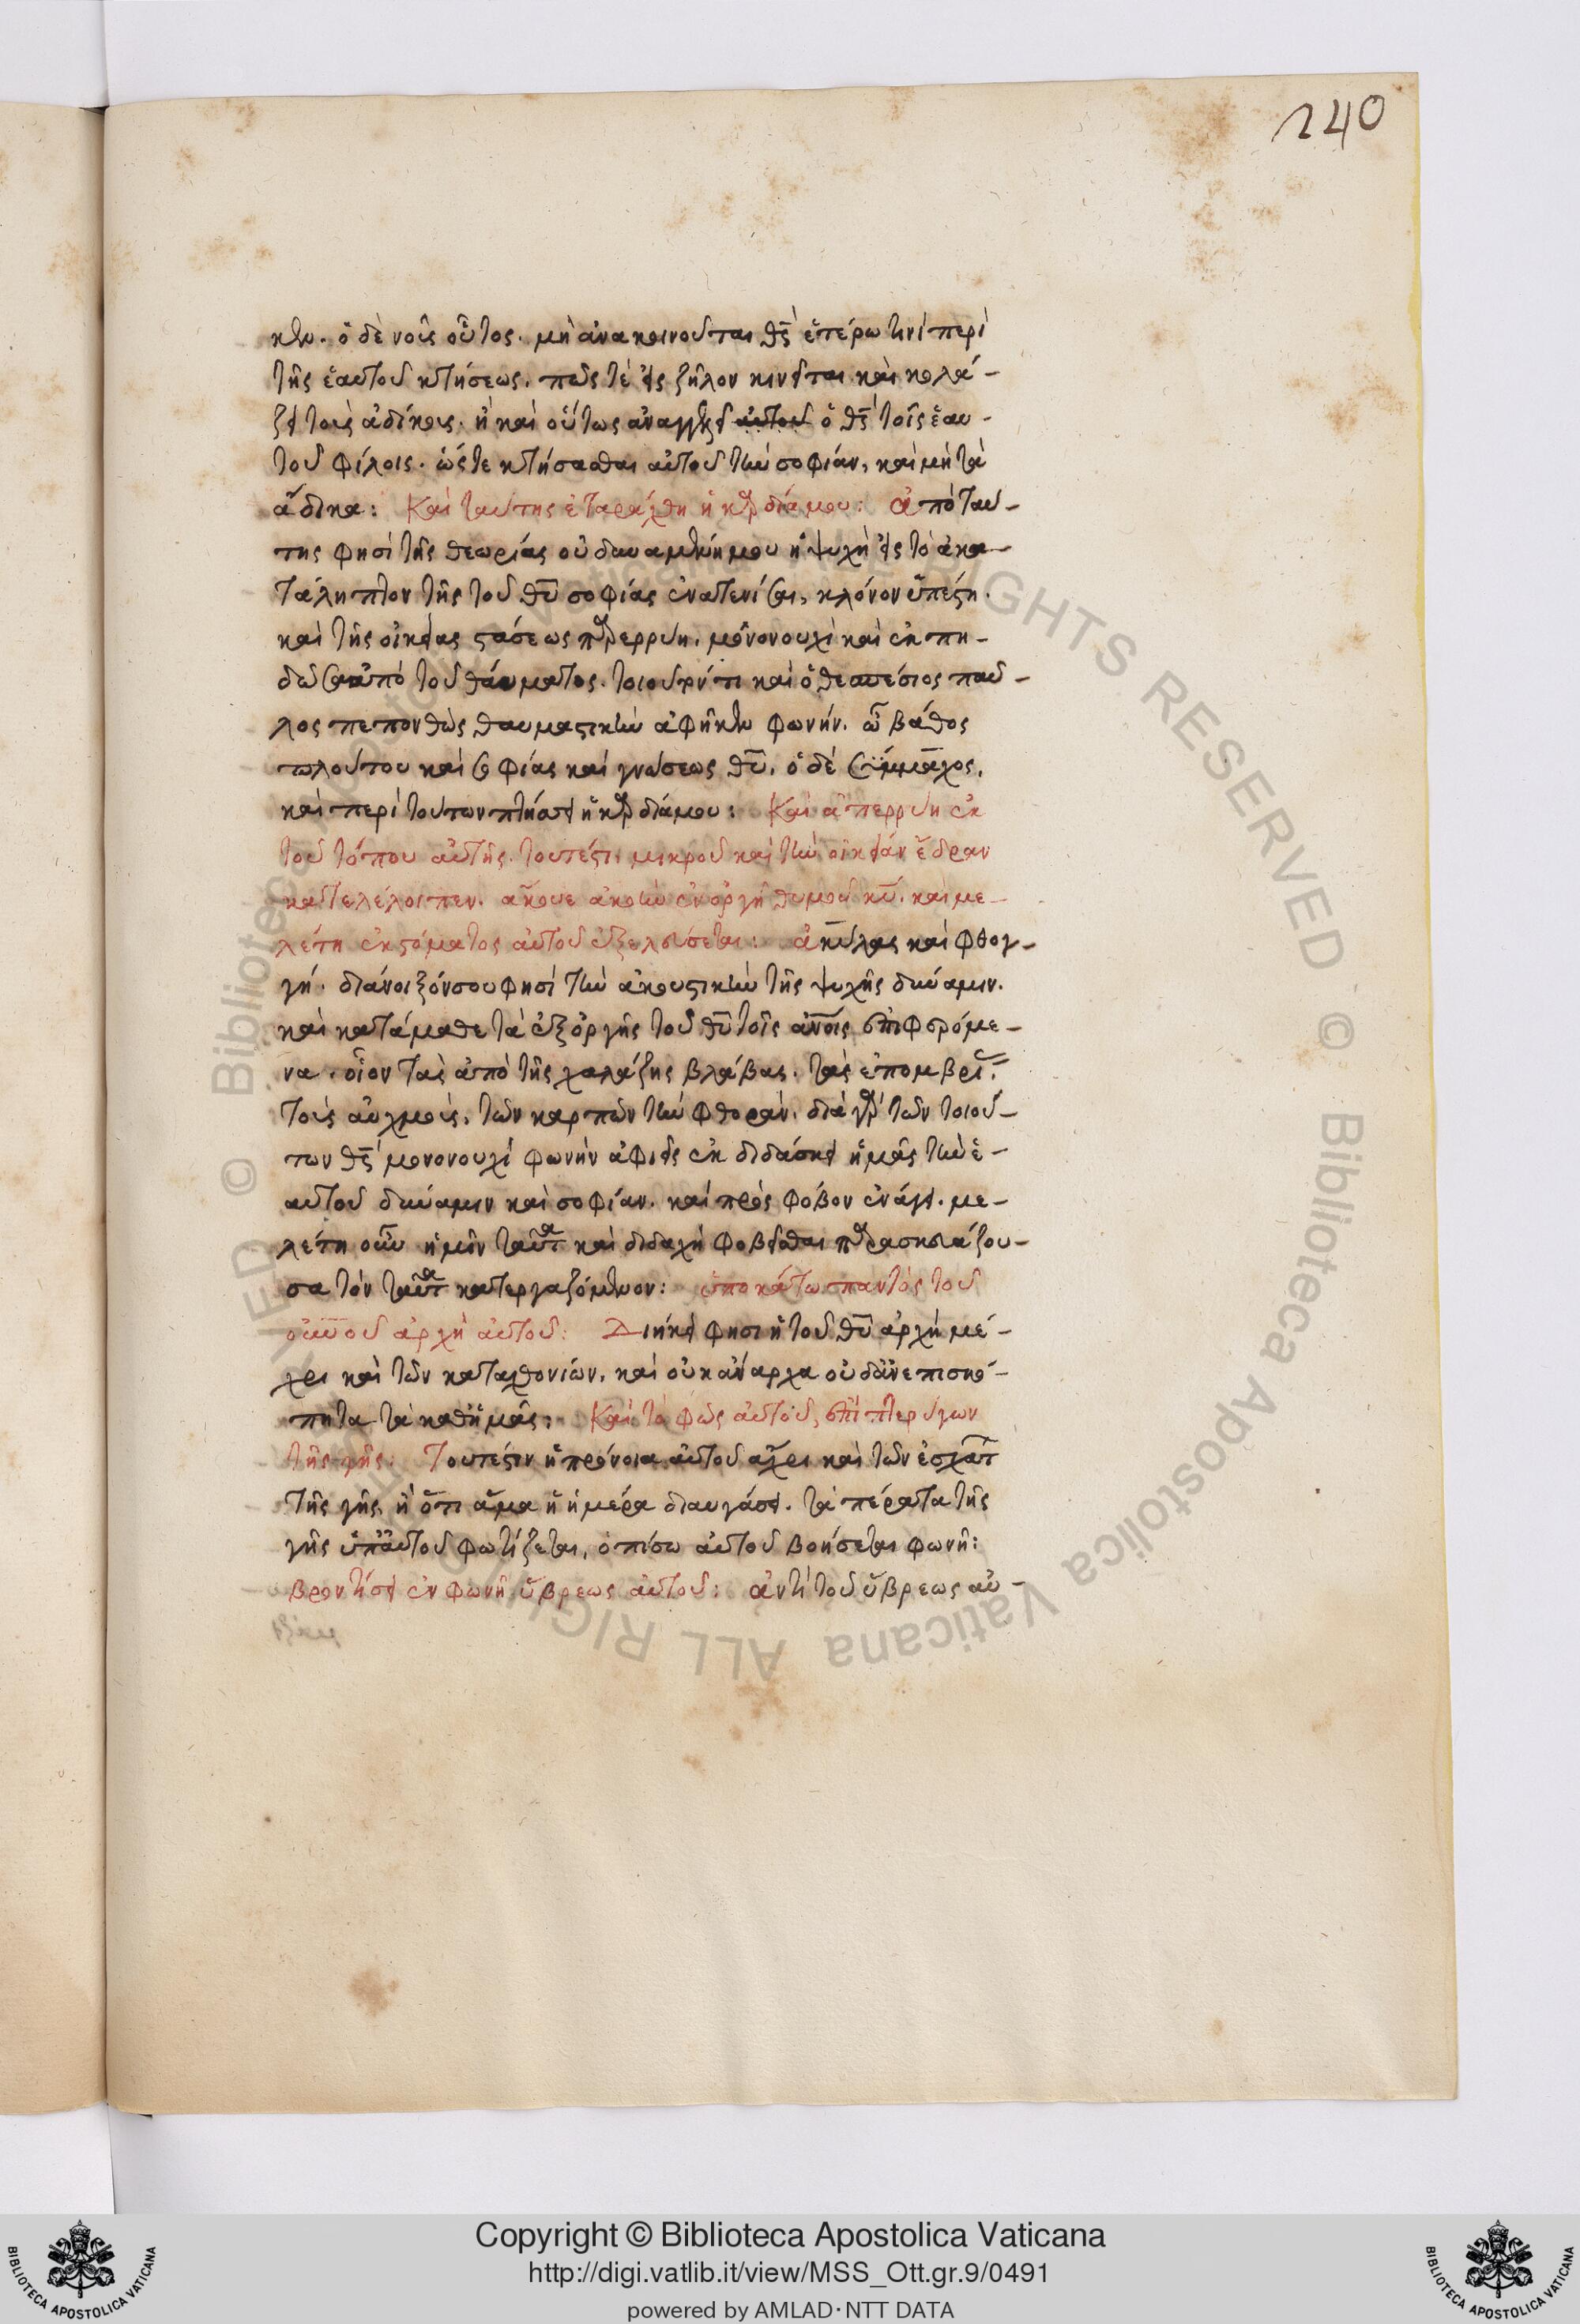 240
κεν. ὁ δὲ νοῦς οὗτος. μὴ ἀνακοινοῦται θς ἑτέρω τινὶ περὶ
τῆς ἑαυτοῦ κτήσεως. πῶς τὲ εἰς ζῆλον κινεῖται καὶ κολά-
ζει τοὺς ἀδίκους. ἢ καὶ οὕτως ἀναγγελεῖ ὁ θς τοῖς ἑαυ-
τοῦ φίλοις. ὥστε κτήσασθαι αὐτοῦ τὴν σοφίαν, καὶ μὴ τὰ
ἄδικα: Καὶ ταύτης ἐταράχθη ἡ καρδία μου: ἀπὸ ταύ-
της φησὶ τῆς θεωρίας οὐ δυναμένη μου ἡ ψυχὴ εἰς τὸ ἀκα-
τάληπτον τῆς τοῦ θυ σοφίας ἐνατενίσαι, κλόνον ὑπέστη.
καὶ τῆς οἰκείας στάσεως παρερρύη, μόνον ουχὶ καὶ ἐκ πη-
δῶσα ἀπὸ τοῦ θάυματος. τοιοῦτόν τι καὶ ὁ θεσπέσιος παῦ-
λος πεπονθὼς θαυμαστικὴν ἀφῆκεν φωνήν. ὦ βάθος
πλούτου καὶ σοφίας καὶ γνώσεως θυ, ὁ δὲ Σύμμαχος,
καὶ περὶ τούτων πτήσσει ἡ καρδία μου: Καὶ ἀπερρύη ἐκ
τοῦ τόπου αὐτῆς. τουτέστι μικροῦ καὶ τὴν οἰκείαν ἕδραν
καταλέλοιπεν. ἄκουε ἀκοὴν ἐν ὀργῆ θυμοῦ κυ. καὶ με-
λέτη ἐκ στόματος αὐτοῦ ἐξελεύσεται: ἀκύλας καὶ φθογ-
γή. διάνοιξόν σου φησὶ τὴν ἀκουστικὴν τῆς ψυχῆς δύναμιν.
καὶ κατάμαθε τὰ ἐξ ὀργῆς τοῦ θυ τοῖς ανοις ἐπιφερόμε-
να. οἷον τὰς ἀπὸ τῆς χαλάζης βλάβας. τὰς ἐπομβρί.
τοὺς αὐχμοὺς, τῶν καρπῶν τὴν φθορὰν. διὰ γὰρ τῶν τοιού-
των θς μονονουχὶ φωνὴν ἀφιεὶς ἐκ διδάσκει ἡμᾶς τὴν ἑ-
αυτοῦ δύναμιν καὶ σοφίαν. καὶ πρὸς φόβον ἐνάγει. με-
λέτη οὖν ἡμῖν ταῦτα καὶ διδαχὴ φοβεῖσθαι παρασκευάζου-
σα τὸν ταῦτα κατεργαζόμενον: ὑποκάτω παντὸς τοῦ
οὐνου ἀρχὴ αὐτοῦ: Διήκει φησι ἡ τοῦ θυ ἀρχὴ μέ-
χρι καὶ τῶν καταχθονίων, καὶ οὐκ ἄναρχα οὐδ' ἀνεπισκό-
πητα τὰ καθ' ἡμᾶς: Καὶ τὸ φῶς αὐτοῦ, ἐπὶ πτερύγων
τῆς γῆς: Τουτέστιν ἡ πρόνοια αὐτοῦ ἄχρι καὶ τῶν ἐσχάτ
τῆς γῆς, ἢ ὅτι ἅμα ἡ ἡμέρα διαυγάσει. τὰ πέρατα τῆς
γῆς ὑπ' αὐτοῦ φωτίζεται, ὀπίσω αὐτοῦ βοήσεται φωνῆ:
βροντήσει ἐν φωνῆ ὕβρεως αὐτοῦ: ἀντὶ τοῦ ὕβρεως αὐ-
Copyright © Biblioteca Apostolica Vaticana
http://digi.vatlib.it/view/MSS_Ott.gr.9/0491
powered by AMLAD·NTT DATA
BIBLIOTECA APOSTOLICA VATICANA
BIBLIOTECA APOSTOLICA VATICANA
© Biblioteca Apostolica Vaticana ALL RIGHTS RESERVED © Biblioteca Apostolica Vaticana ALL RIGHTS RESERVED